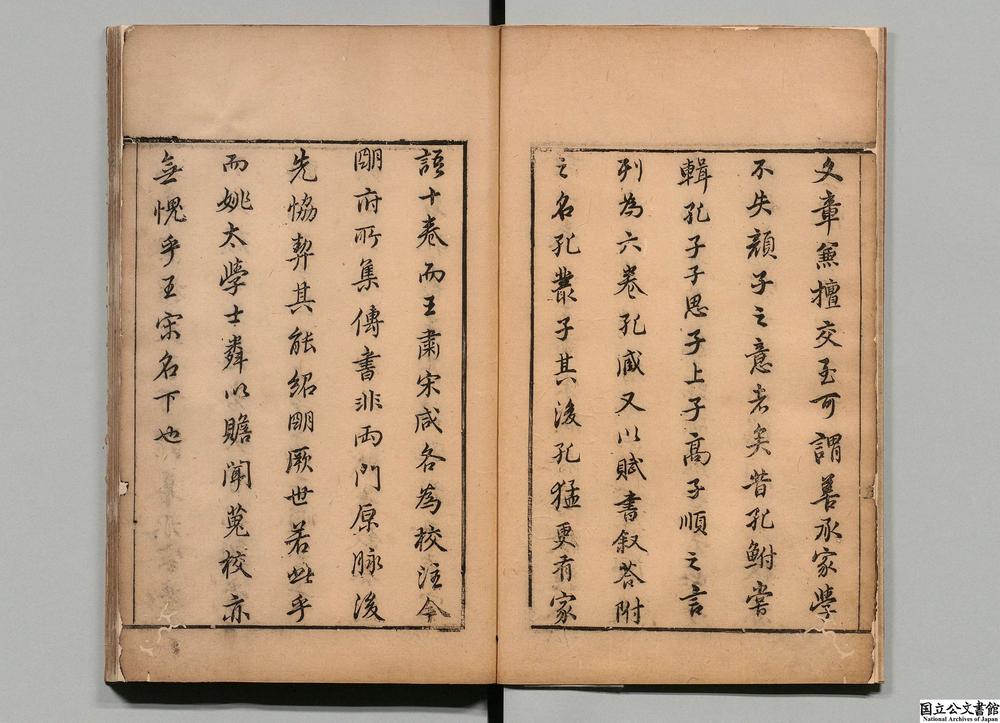 文章兼擅交至可謂善承家學
不失顔子之意者矣昔孔鮒嘗
輯孔子子思子上子高子順之言
列為六卷孔臧又以賦書叙荅附
之名孔叢子其後孔猛更有家
語十卷而王肅宋咸各為校注今
明府所集傳書非両門原脉後
先恊契其能紹明厥世若此乎
而姚太學士粦以贍聞蒐校亦
無愧乎王宋名下也
国立公文書館
National Archives of Japan